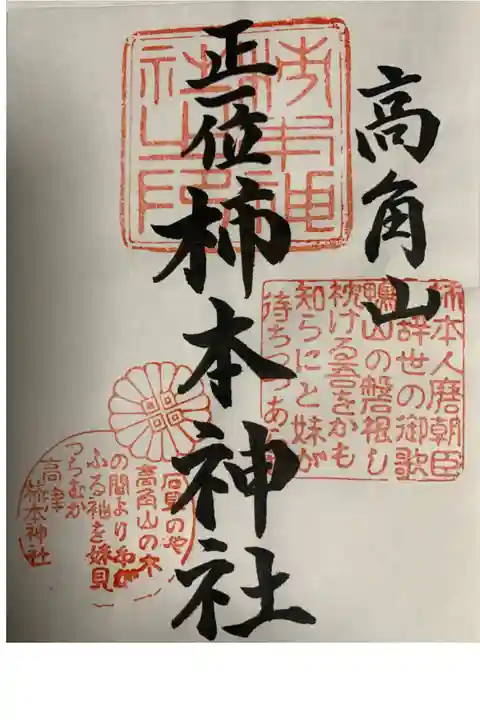 高角山
正一位柿本神社
柿本人麿朝臣
辞世の御歌
鴨山の磐根し
枕ける吾をかも
知らにと妹が
待ちつつあ
石見のや
高角山の木
の間よりわが
ふる袖を妹見
つらむか
高津
柿本神社